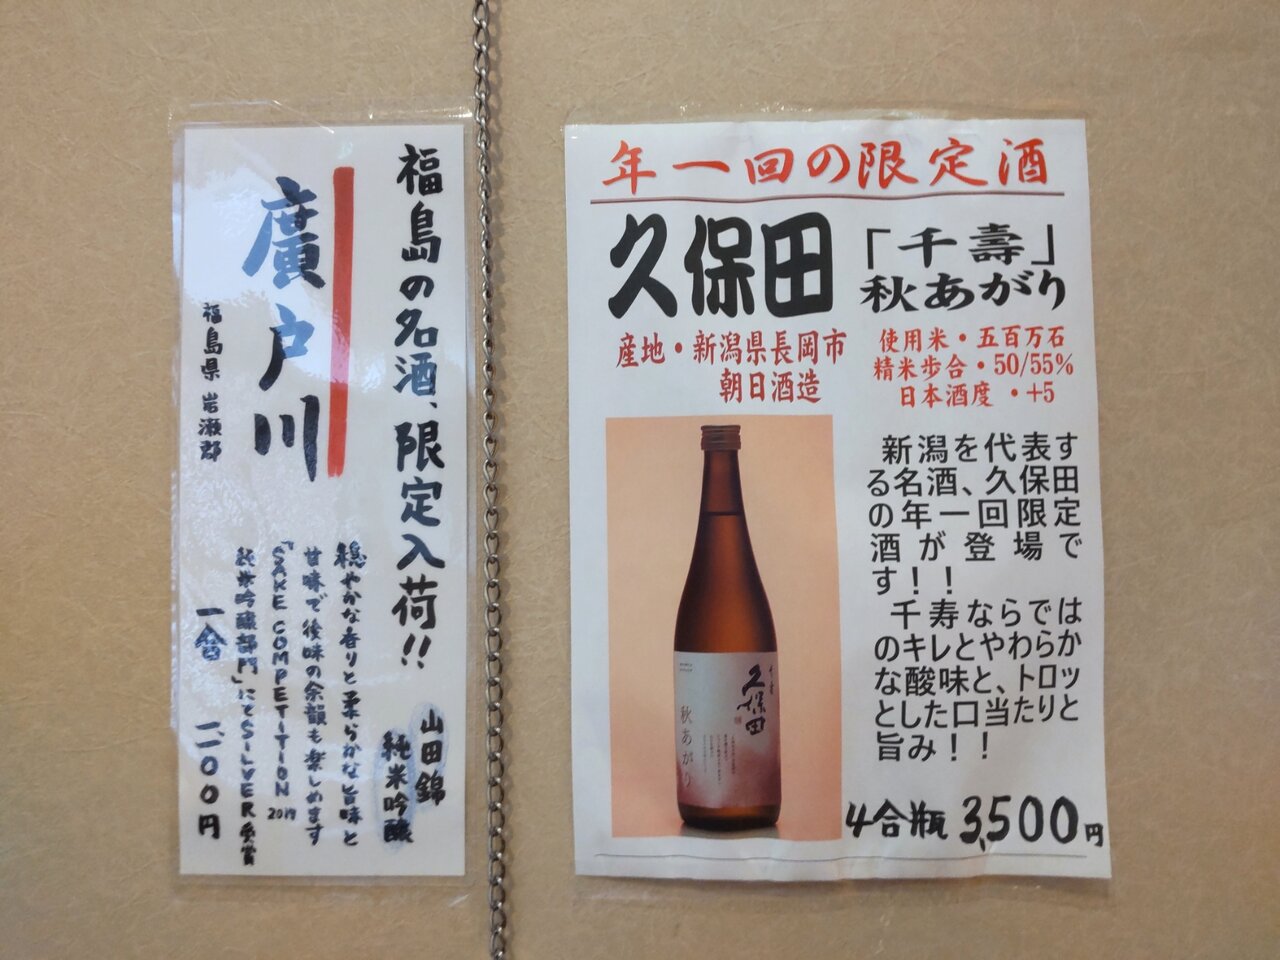 福島の名酒、限定入荷!!
山田錦
純米吟醸
廣戸川
福島県 岩瀬郡
穏やかな香りと柔らかな旨味と
甘味で後味の余韻も楽しめます
「SAKE COMPETITION 2019
純米吟醸部門」にてSILVER受賞
一合 一、一〇〇円
年一回の限定酒
久保田
「千壽」
秋あがり
産地・新潟県長岡市
朝日酒造
使用米・五百万石
精米歩合・50/55%
日本酒度 ・+5
新潟を代表す
る名酒、久保田
の年一回限定
酒が登場で
す!!
千寿ならでは
のキレとやわらか
な酸味と、トロッ
とした口当たりと
旨み!!
久保田
秋あがり
4合瓶 3,500円